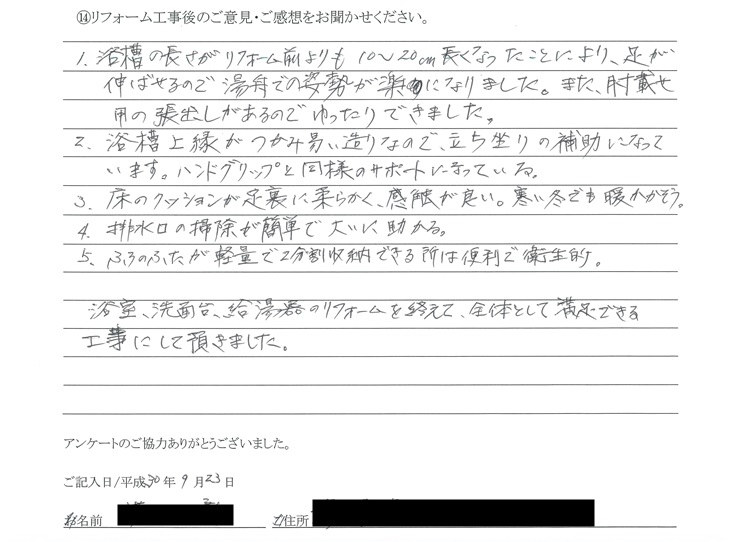 ⑭リフォーム工事後のご意見・ご感想をお聞かせください。
1. 浴槽の長さがリフォーム前よりも10〜20cm長くなったことにより、足が
伸ばせるので湯舟での姿勢が楽になりました。また、肘載せ
用の張出しがあるのでゆったりできました。
2. 浴槽上縁がつかみ易い造りなので、立ち坐りの補助になって
います。ハンドグリップと同様のサポートになっている。
3. 床のクッションが足裏に柔らかく、感触が良い。寒い冬でも暖かそう。
4. 排水口の掃除が簡単で大いに助かる。
5. ふろのふたが軽量で2分割収納できる所は便利で衛生的。
浴室、洗面台、給湯器のリフォームを終えて、全体として満足できる
工事にして頂きました。
アンケートのご協力ありがとうございました。
ご記入日/平成30年9月23日
名前 ご住所